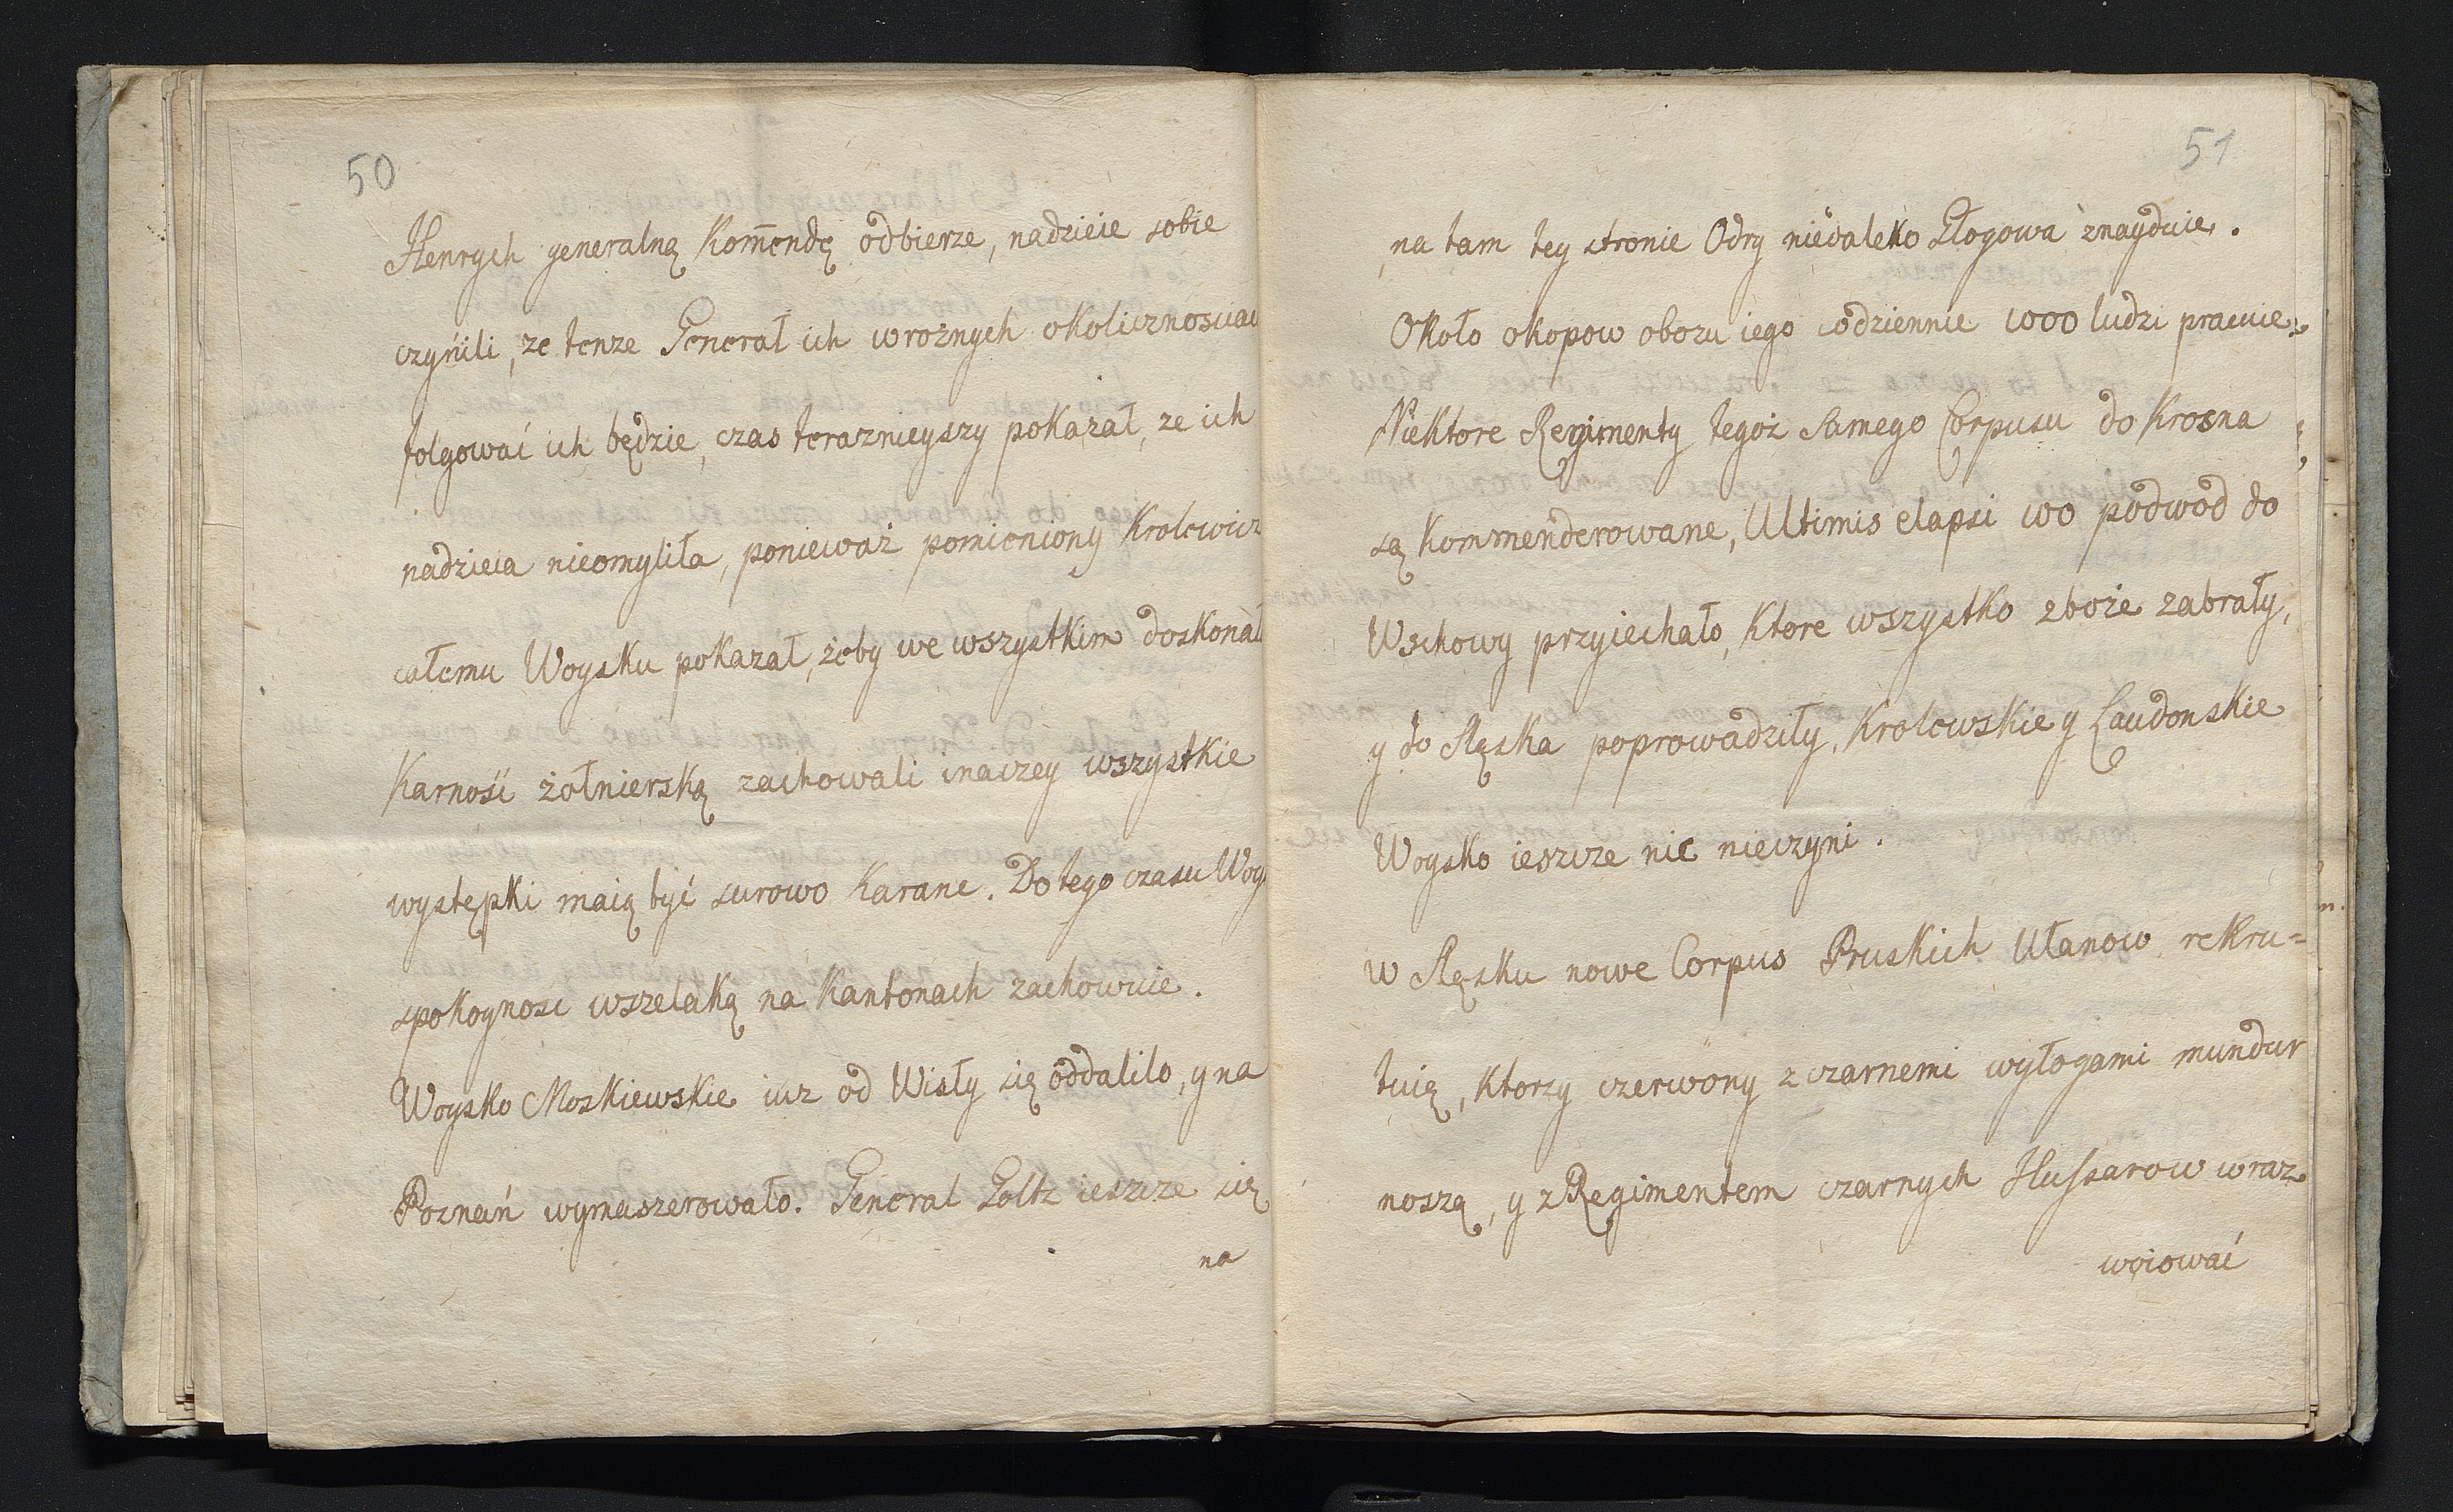 50
Henrych generalną Komendę odbierze, nadzieie sobie
czynili, ze tenze Generał ich w rożnych okolicznosciach
folgować ich będzie, czas teraznieyszy pokazał, ze ich
nadzieia nieomyliła, ponieważ pomieniony Krolewicz
całemu Woysku pokazał, żeby we wszystkim doskonałą
Karność żołnierską zachowali inaczey wszystkie
występki maią być surowo Karane. Do tego czasu Woys
spokoynosc wszelaką na Kantonach zachowuie.
Woysko Moskiewskie iuz od Wisły się oddalilo, y na
Poznań wymaszerowało. Generał Goltz ieszcze się
na
51
na tam tey stronie Odry niedaleko Głogowa znayduie.
Około okopow obozu iego codziennie 1000 ludzi pracuie.
Niektore Regimenty tegoż Samego Corpusu do Krosna
są Kommenderowane, Ultimis elapsi 100 podwod do
Wschowy przyiechało, Ktore wszystko zboże zabrały,
y do Sląska poprowadziły, Krolewskie y Laudonskie
Woysko ieszcze nic nieczyni.
w Sląsku nowe Corpus Pruskich Ułanow rekru=
tuią, Ktorzy czerwony z czarnemi wyłogami mundur
noszą, y z Regimentem czarnych Hussarow wraz
woiować